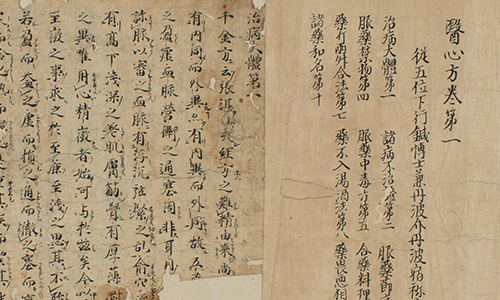 醫心方卷第一
従五位下行鍼博士兼丹波介丹波宿祢
治病大體第一　諸病不治證第二　服藥節
服藥禁物第四　服藥中毒方第五　合藥料理
藥斤兩升合法第七　藥不入湯酒法第八　藥畏惡相
諸藥和名第十
治病大體第一
千金方云張湛曰夫經方之難精由来尚
有内同而外異亦有内異而外同故五
之盈虛血脉營衛之通塞固非耳目
診脉以審之血脉有浮沉弦緊之亂俞穴
有高下淺深之差肌膚筋骨有厚薄剛
之異唯用心精微者始可与於茲矣今以
至微之事求之於至麁至淺之思其不殆
若盈而益之虛而損之通而徹之塞而壅